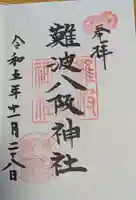 奉拝
難波八阪神社
令和五年十一月二八日